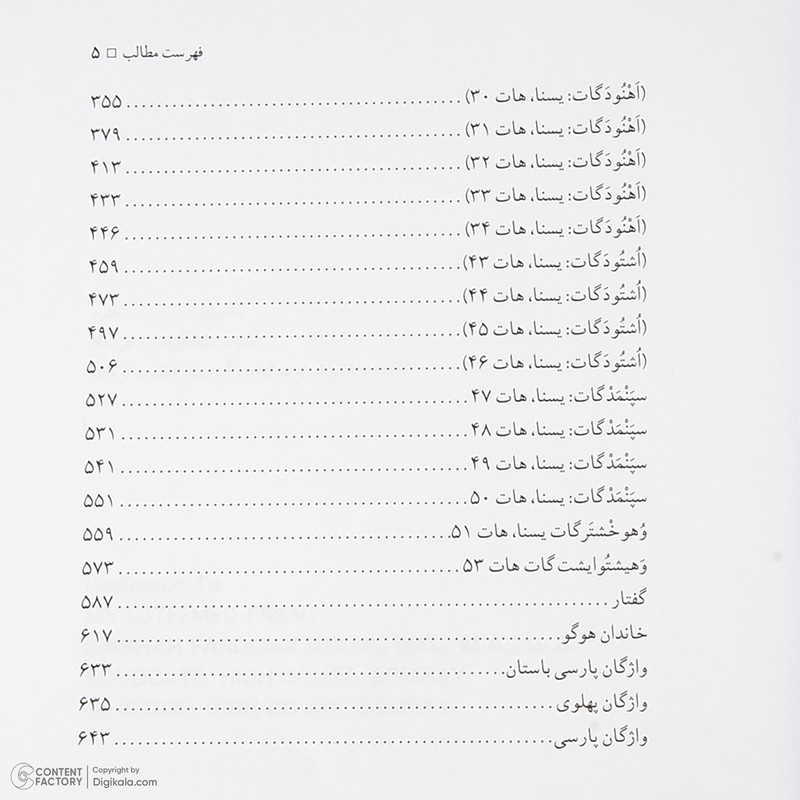 فهرست مطالب □ ۵
(اَهْنُودَگات: یسنا، هات ۳۰) ........................................ ۳۵۵
(اَهْنُودَگات: یسنا، هات ۳۱) ........................................ ۳۷۹
(اَهْنُودَگات: یسنا، هات ۳۲) ........................................ ۴۱۳
(اَهْنُودَگات: یسنا، هات ۳۳) ........................................ ۴۳۳
(اَهْنُودَگات: یسنا، هات ۳۴) ........................................ ۴۴۶
(اُشتُودَگات: یسنا، هات ۴۳) ........................................ ۴۵۹
(اُشتُودَگات: یسنا، هات ۴۴) ........................................ ۴۷۳
(اُشتُودَگات: یسنا، هات ۴۵) ........................................ ۴۹۷
(اُشتُودَگات: یسنا، هات ۴۶) ........................................ ۵۰۶
سپَنْمَدْگات: یسنا، هات ۴۷ ........................................ ۵۲۷
سپَنْمَدْگات: یسنا، هات ۴۸ ........................................ ۵۳۱
سپَنْمَدْگات: یسنا، هات ۴۹ ........................................ ۵۴۱
سپَنْمَدْگات: یسنا، هات ۵۰ ........................................ ۵۵۱
وُهوخْشتَرگات یسنا، هات ۵۱ ........................................ ۵۵۹
وَهیشتُوایشت گات هات ۵۳ ........................................ ۵۷۳
گفتار ........................................ ۵۸۷
خاندان هوگو ........................................ ۶۱۷
واژگان پارسی باستان ........................................ ۶۳۳
واژگان پهلوی ........................................ ۶۳۵
واژگان پارسی ........................................ ۶۴۳
CONTENT FACTORY | Copyright by Digikala.com